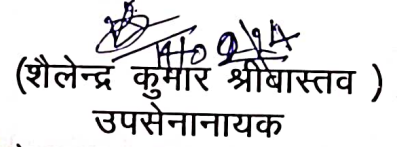 (शैलेन्द्र कुमार श्रीबास्तव )
उपसेनानायक